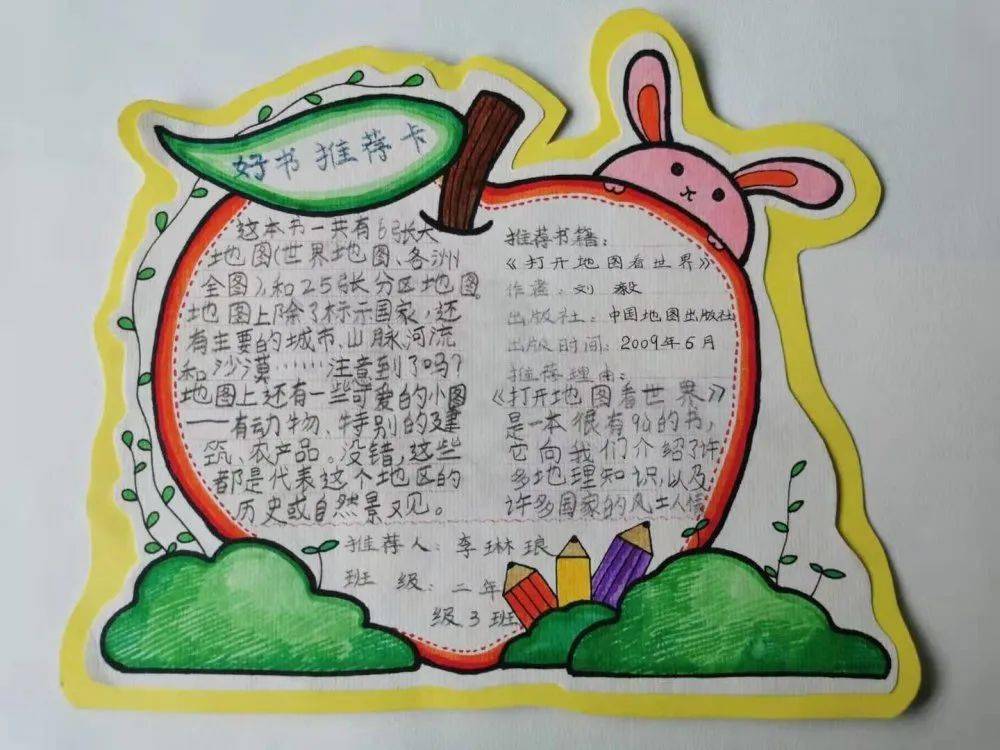 好书推荐卡
这本书一共有6张大
地图(世界地图、各洲
全图),和25张分区地图。
地图上除了标示国家,还
有主要的城市、山脉河流
和沙漠……注意到了吗?
地图上还有一些可爱的小图
——有动物、特别的建
筑、农产品。没错,这些
都是代表这个地区的
历史或自然景观。
推荐书籍:
《打开地图看世界》
作者:刘毅
出版社:中国地图出版社
出版时间:2009年6月
推荐理由:
《打开地图看世界》
是一本很有的书,
它向我们介绍了许
多地理知识,以及
许多国家的风土人情
推荐人:李琳琅
班级:二年
级3班